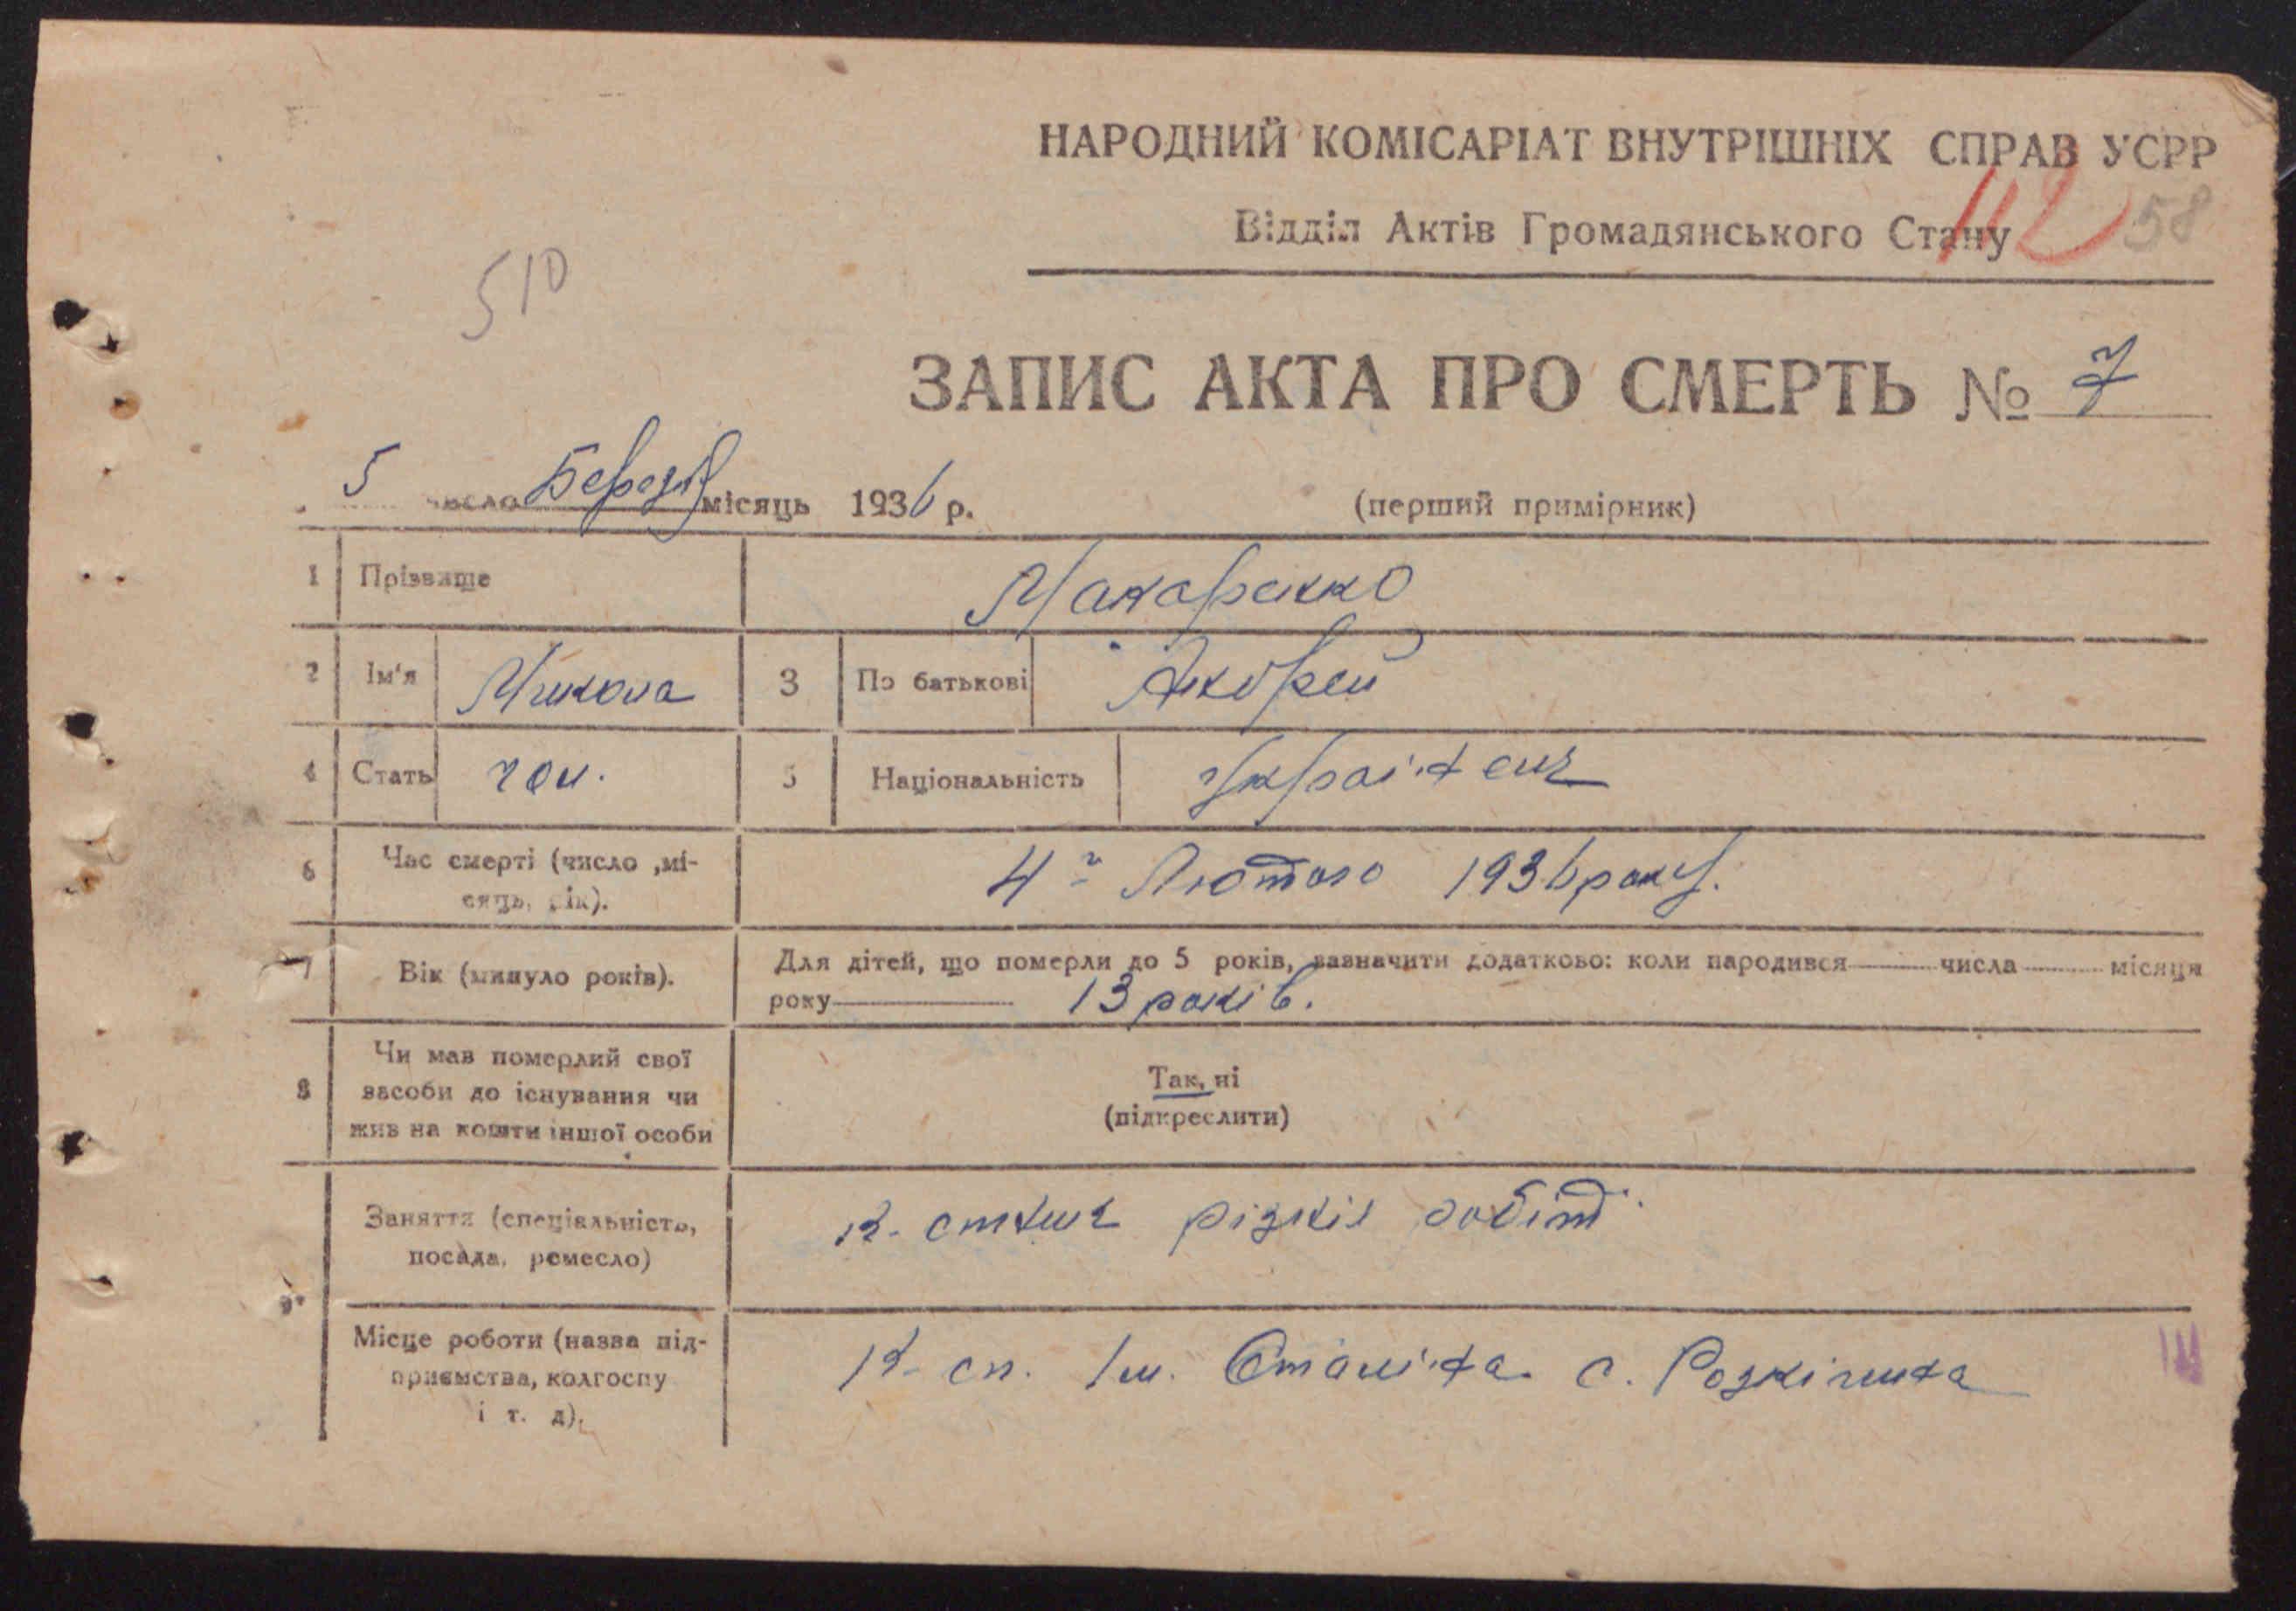 НАРОДНИЙ КОМІСАРІАТ ВНУТРІШНІХ СПРАВ УСРР
Відділ Актів Громадянського Стану
112 58
510
ЗАПИС АКТА ПРО СМЕРТЬ № 7
5 число Березня місяць 1936 р. (перший примірник)
1 Прізвище Макаренко
2 Ім'я Микола 3 По батькові Андрей
4 Стать чол. 5 Національність Українець
6 Час смерті (число ,мі-
сяць, рік). 4го Лютого 1936 року.
7 Вік (минуло років). Для дітей, що померли до 5 років, зазначити додатково: коли народився числа місяця
року 13 років.
8 Чи мав померлий свої
засоби до існування чи
жив на кошти іншої особи
Так, ні
(підкреслити)
Заняття (спеціальність,
посада, ремесло)
к-спник різних робіт
9
Місце роботи (назва під-
приємства, колгоспу
і т. д).
К-сп. Ім. Сталіна с.